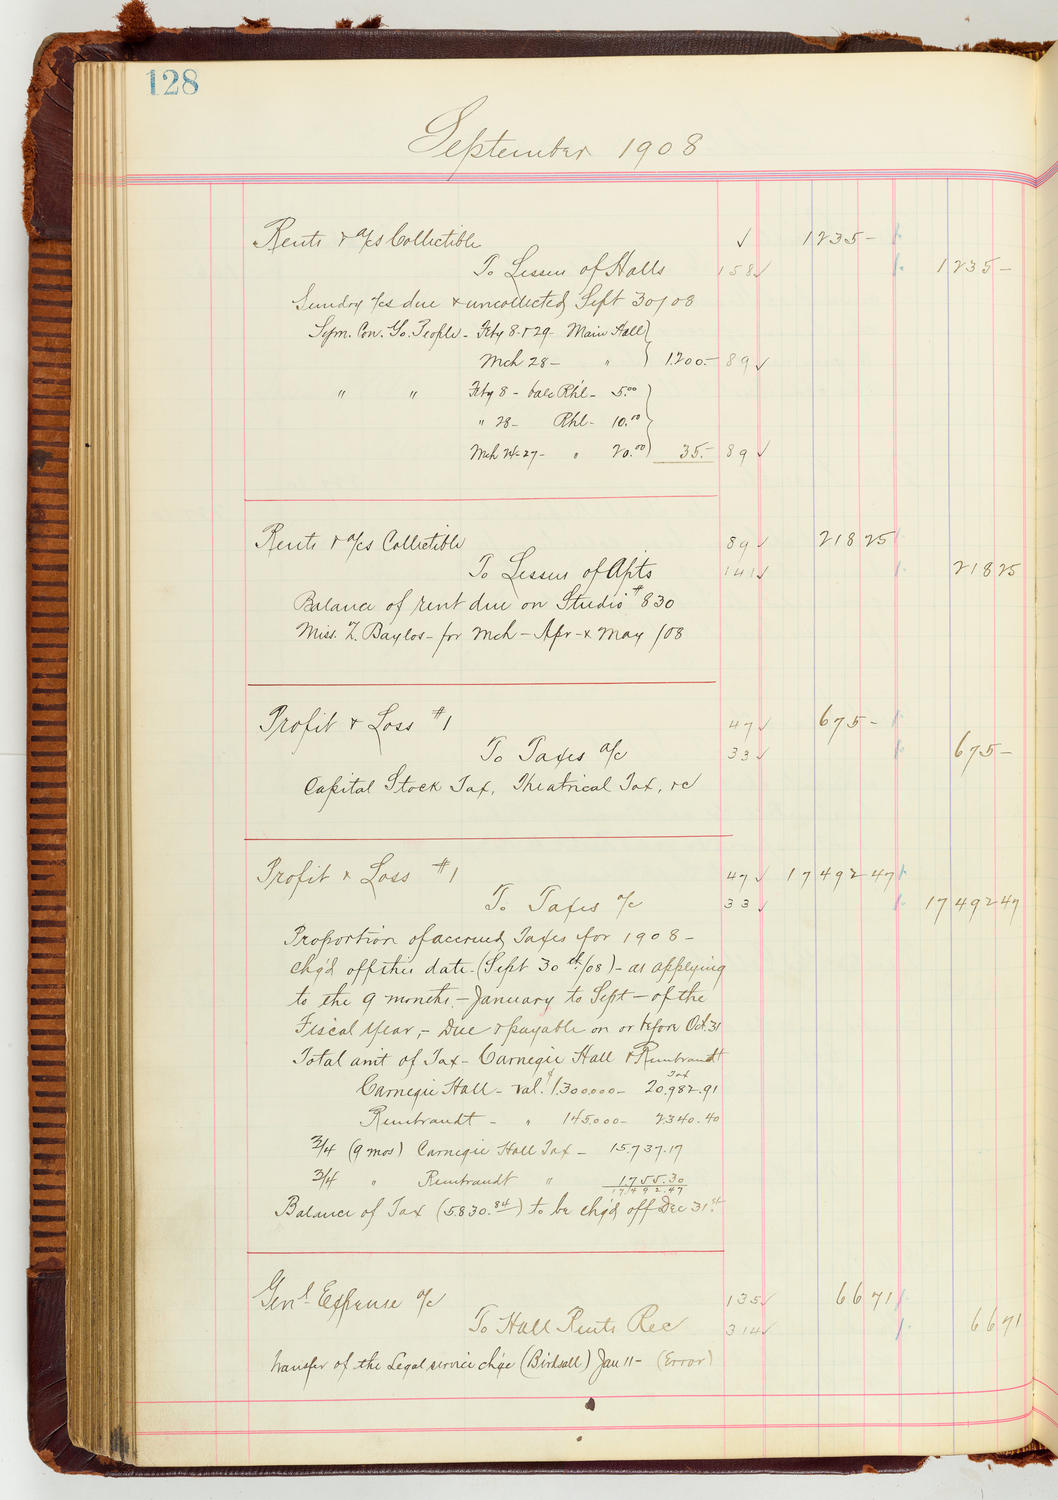 128
September 1908
Rents & a/cs Collectible ✓ 1235 –
To Lessees of Halls 158 ✓ 1235 –
Sundry a/cs due & uncollected Sept 30/08
Sym. Con. Yo. People – Feby 8 & 29 – Main Hall
Mch 28 – " 1200.– 89 ✓
" " Feby 8 – balc Rhl – 5.00
" 28 – Rhl – 10.00
Mch 24–27 – " 20.00 35.– 89 ✓
Rents & a/cs Collectible 89 ✓ 218 25
To Lessees of Apts 141 ✓ 218 25
Balance of rent due on Studio #830
Miss. Z. Baylos – for Mch – Apr – & May /08
Profit & Loss #1 47 ✓ 675 –
To Taxes a/c 33 ✓ 675 –
Capital Stock Tax, Theatrical Tax, &c
Profit & Loss #1 47 ✓ 17492 47
To Taxes a/c 33 ✓ 17492 47
Proportion of accrued Taxes for 1908 –
chg'd off this date – (Sept 30th/08) – as applying
to the 9 months, – January to Sept – of the
Fiscal Year, – Due & payable on or before Oct. 31
Total amt of Tax – Carnegie Hall & Rembrandt
Tax
Carnegie Hall – val. $1.300.000 – 20.982.91
Rembrandt – " 145.000 – 2340.40
3/4 (9 mos) Carnegie Hall Tax – 15.737.17
3/4 " Rembrandt " 1.755.30
17492.47
Balance of Tax (5830.84) to be chg'd off Dec 31st.
Gen'l Expense a/c 135 ✓ 66 71
To Hall Rents Rec 314 ✓ 66 71
Transfer of the Legal service chge (Birdsall) Jan 11 – (Error)